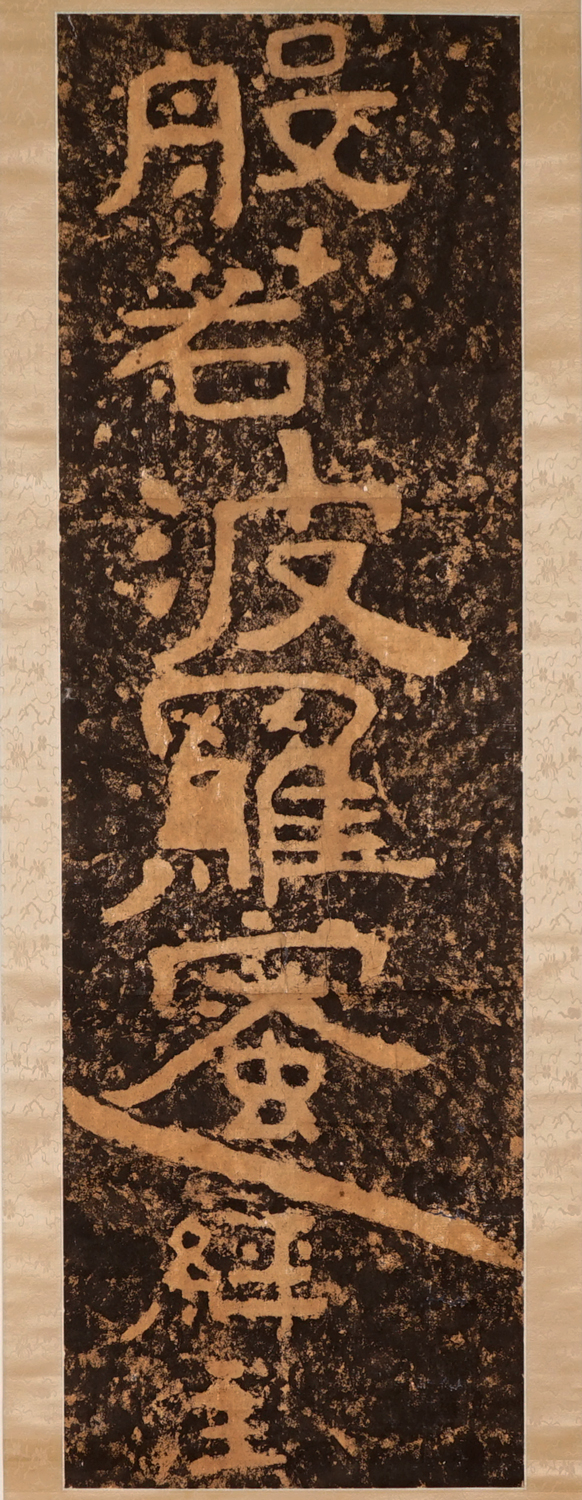 般若波羅蜜經主